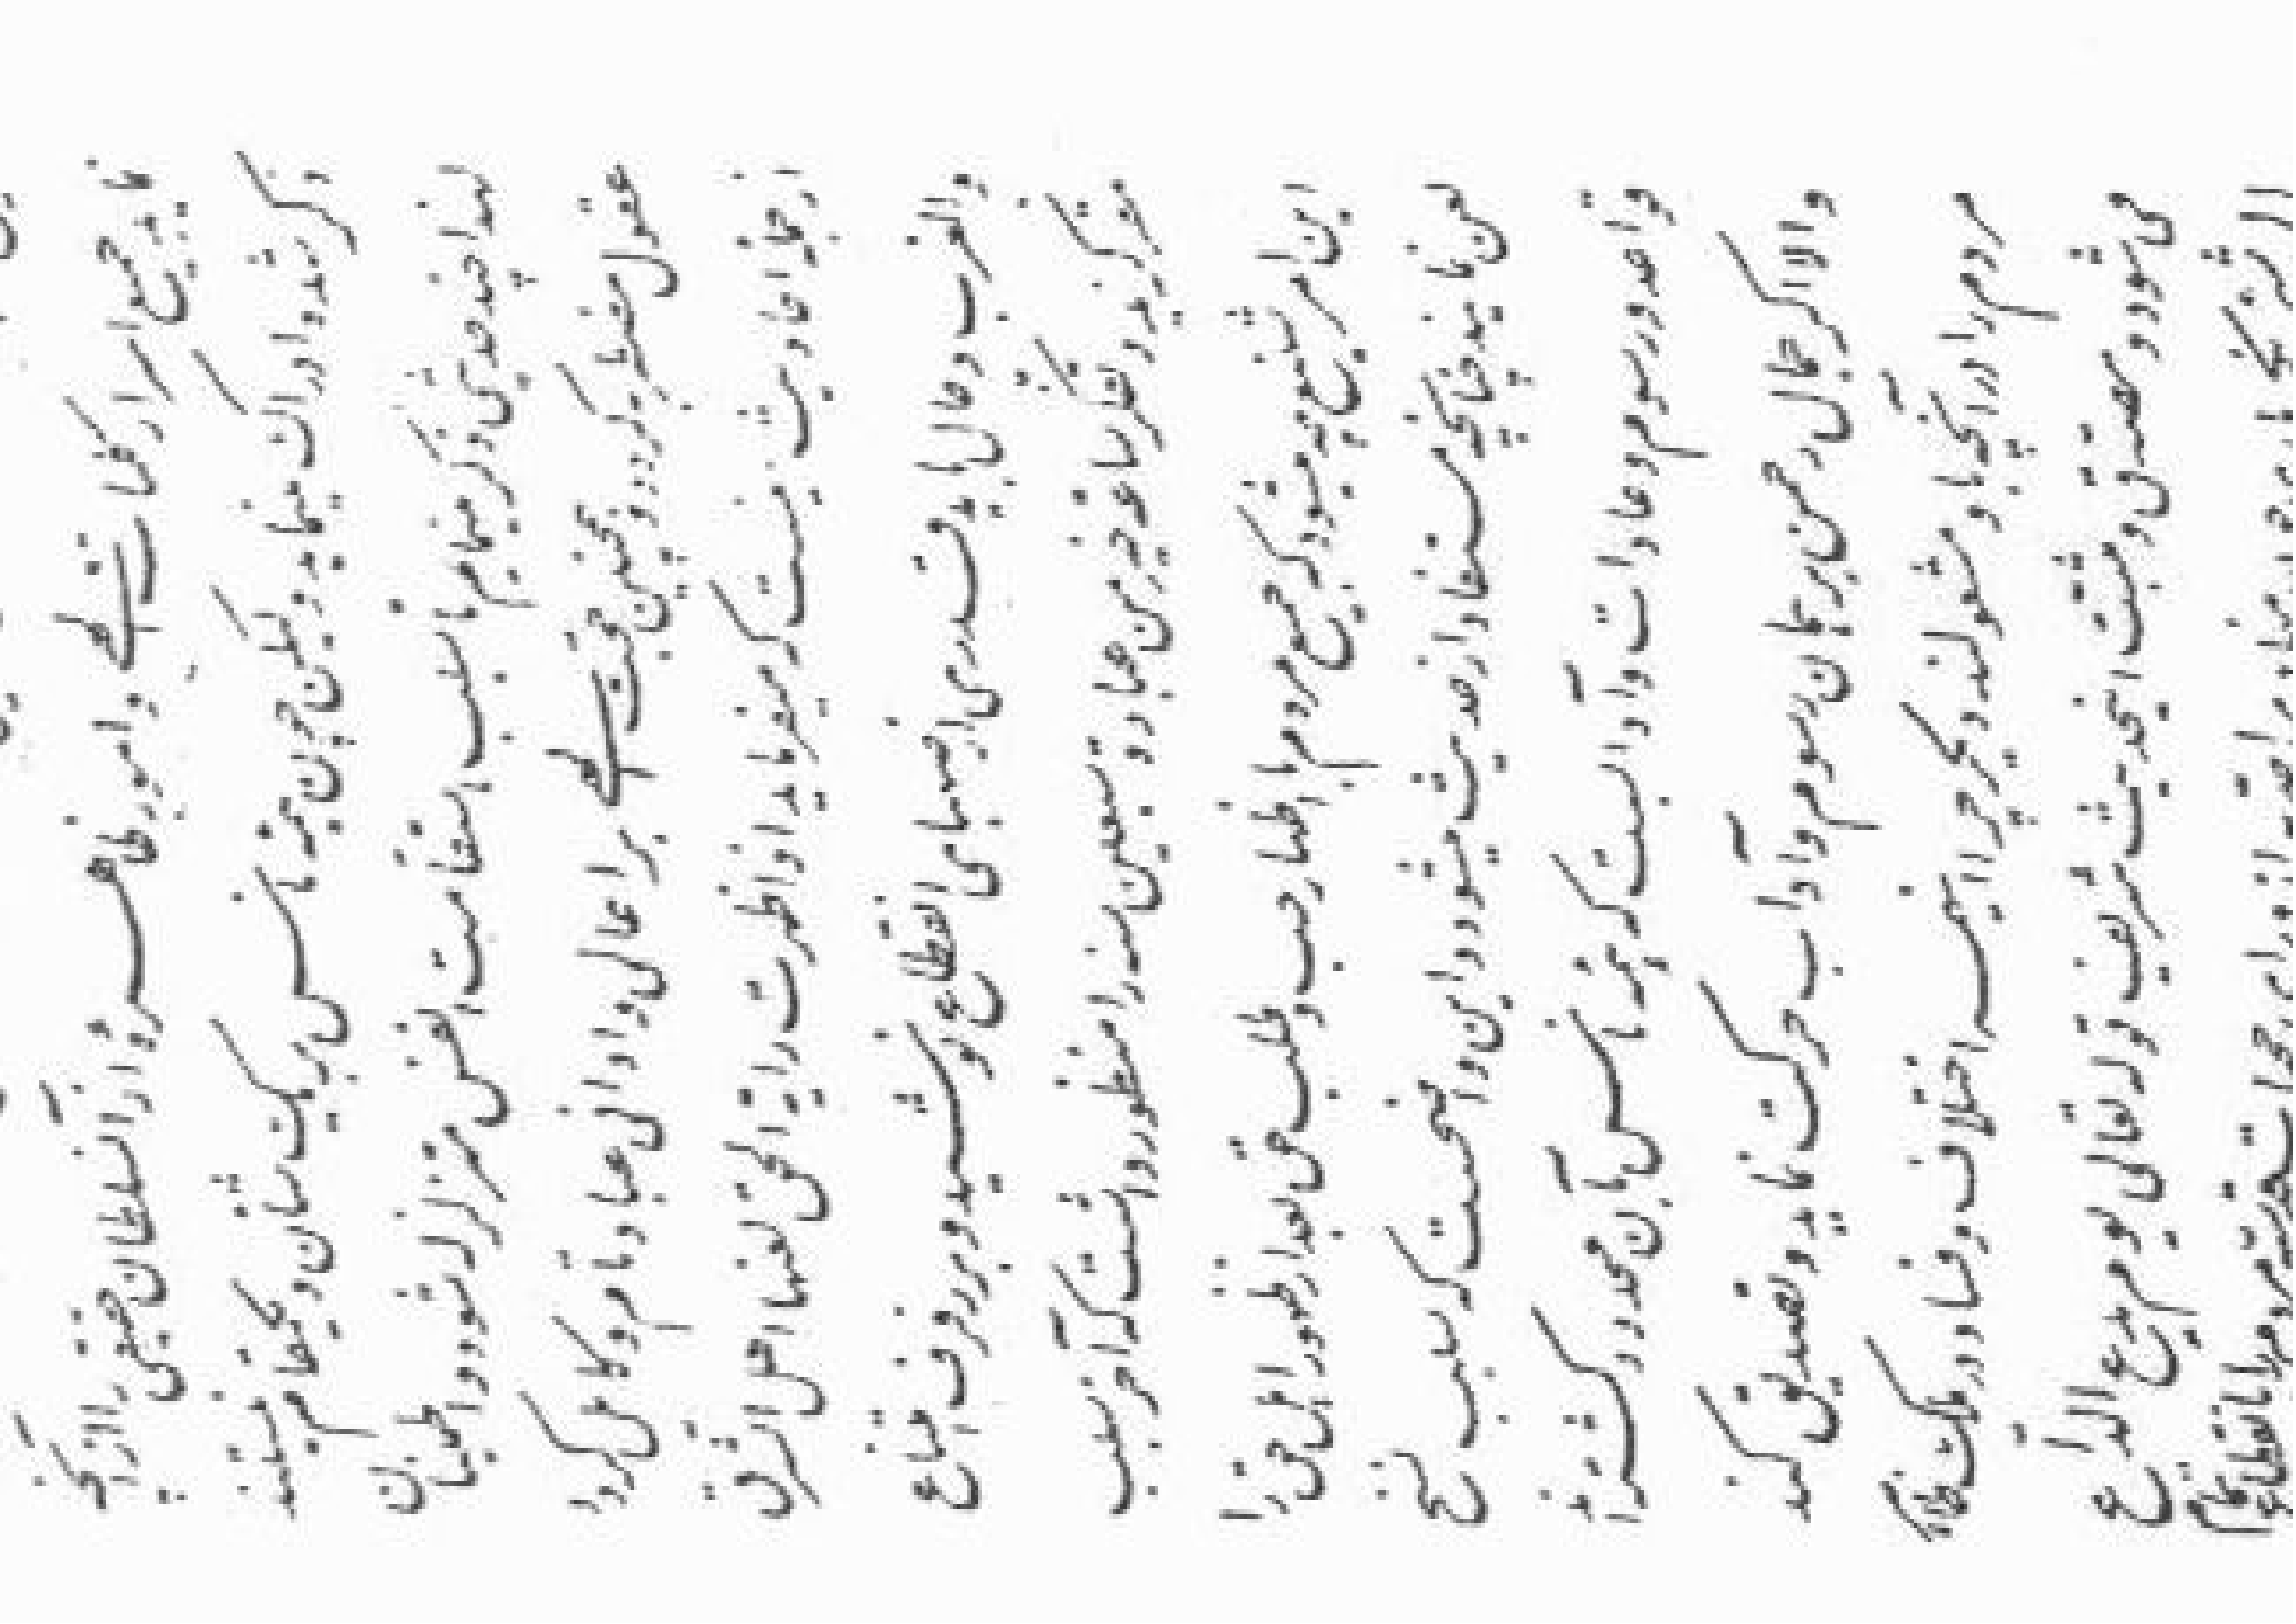 نمایید جمیع اسرار کفایت میکند و امور ظاهرهٔ از آن سلطان حقیقی را از آنچه
ذکر شد و ادراک مینماید ولیکن چون همه ناس بر یک شان و یکمقام نیستند
لهذا چند حدیثی ذکر مینمایم تا سبب استقامت انفس متزلزله شود و اطمینان
عقول مضطربه گردد و همچنین حجت الهی بر اعالی و ادانی عباد تام و کامل گردد و
از جمله احادیث اینست که میفرماید اذا ظهرت رایة الحق لعنها اهل الشرق
والغرب حال باید قدری از صهبای انقطاع نوشید و بر رفرف امتناع
مقر گزید و تفکر ساعة خیر من عبادة سبعین سنه را منظور داشت که آخر سبب
این امر شنیع چه میشود که جمیع مردم با اظهار حب و طلب حق بعد از ظهور اهل حق را
لعن نمایند چنانچه مستفاد از حدیث میشود و این واضحست که سبب نسخ
قواعد و رسوم و عادات و آدابیست که همه ناس بآن محدود گشته‌اند
والا اگر جمال رحمن بر همان رسوم و آداب حرکت نماید و تصدیق کند
مردم را در آنچه بآن مشغولند دیگر چرا اینهمه اختلاف و فساد در ملک ظاهر
می شود و مصدق و مثبت این حدیث شریف قوله تعالی یوم یدع الداع